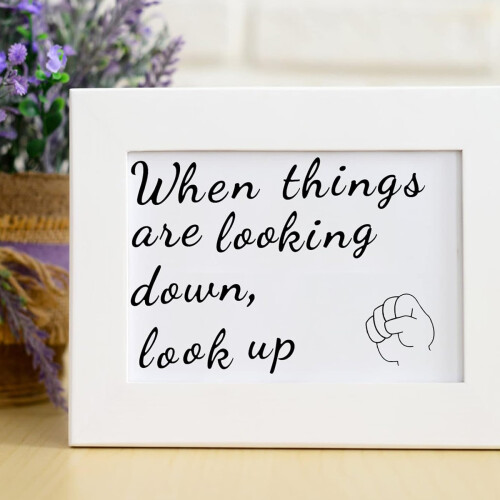 When things
are looking
down,
look up